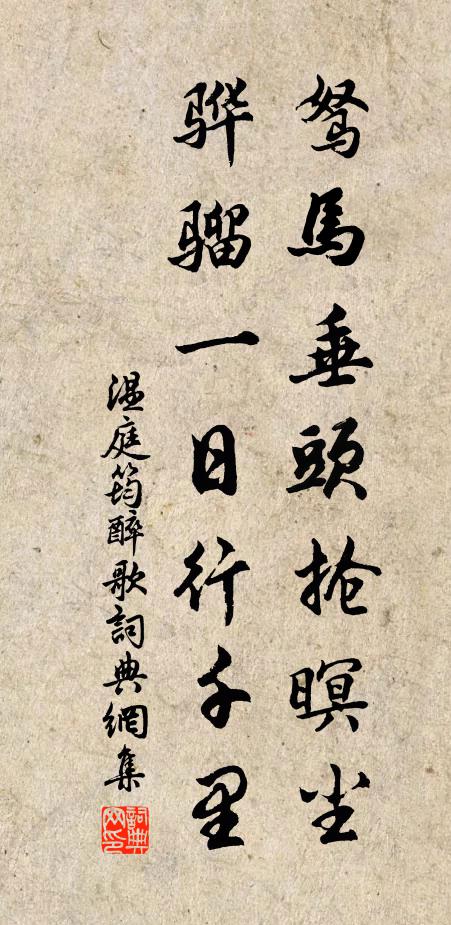 驽馬垂頭抢暝尘
骅骝一日行千里
温庭筠醉歌詞典網集
詞典网印